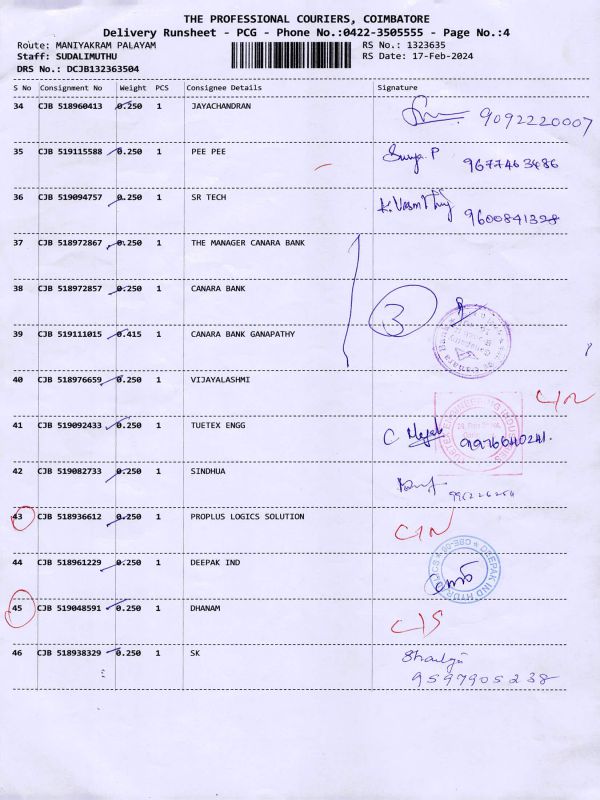 THE PROFESSIONAL COURIERS, COIMBATORE
Delivery Runsheet - PCG - Phone No.:0422-3505555 - Page No.:4
Route: MANIYAKRAM PALAYAM RS No.: 1323635
Staff: SUDALIMUTHU RS Date: 17-Feb-2024
DRS No.: DCJB132363504
S No Consignment No Weight PCS Consignee Details Signature
34 CJB 518960413 0.250 1 JAYACHANDRAN 9092220007
35 CJB 519115588 0.250 1 PEE PEE Surya P 9677463486
36 CJB 519094757 0.250 1 SR TECH 9600841328
37 CJB 518972867 0.250 1 THE MANAGER CANARA BANK
38 CJB 518972857 0.250 1 CANARA BANK 3
39 CJB 519111015 0.415 1 CANARA BANK GANAPATHY
40 CJB 518976659 0.250 1 VIJAYALASHMI C/N
41 CJB 519092433 0.250 1 TUETEX ENGG C
42 CJB 519082733 0.250 1 SINDHUA
43 CJB 518936612 0.250 1 PROPLUS LOGICS SOLUTION C/N
44 CJB 518961229 0.250 1 DEEPAK IND DEEPAK IND
45 CJB 519048591 0.250 1 DHANAM C/S
46 CJB 518938329 0.250 1 SK
9597905238